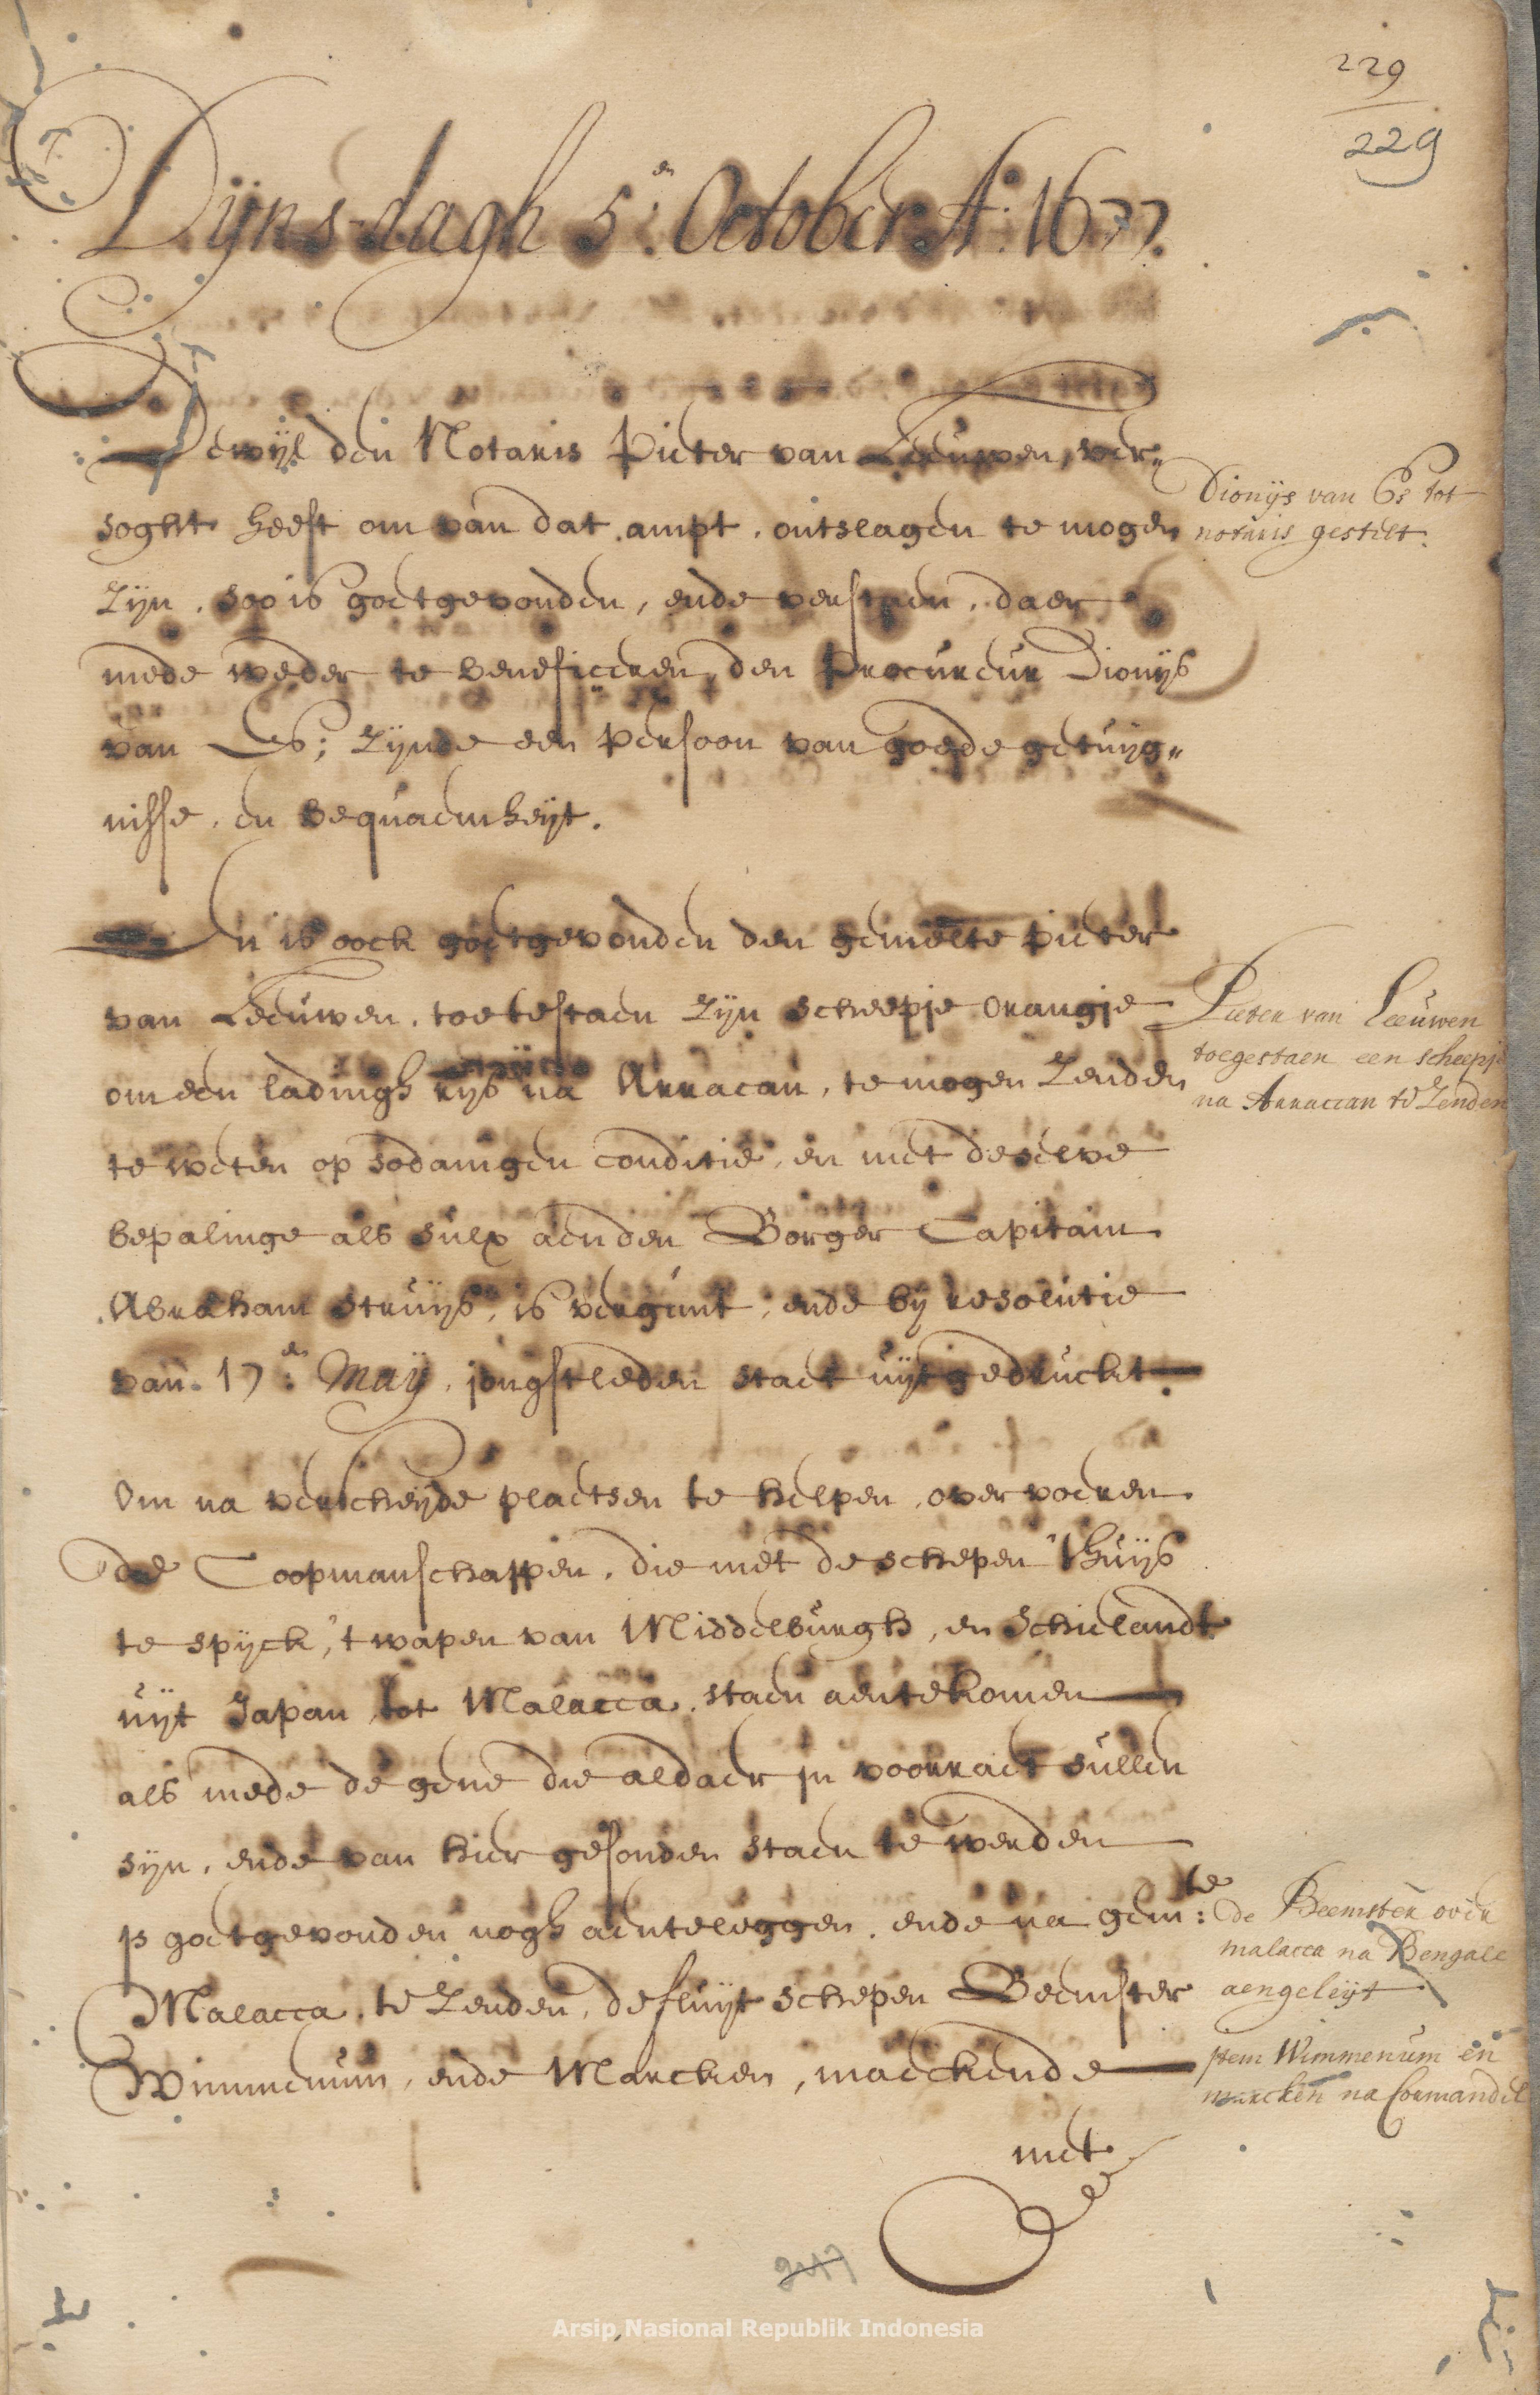 229
229
Dijnsdagh 5.en October A.o 1677.
Dewijl den Notaris Pieter van Leeuwen, ver„
soght heeft om van dat ampt, ontslagen te mogen
zijn, soo is goetgevonden, ende verstaen, daer
mede weder te beneficieren, den Procureur Dionijs
van Es; zijnde een persoon van goede getuijg„
nisse, en bequaemheijt.
Dionijs van Es tot
notaris gestelt.
En is oock goetgevonden den gemelte Pieter
van Leeuwen, toetestaen zijn scheepje Orangje
om een ladingh rijs na Arracan, te mogen zenden
te weten op sodanigen conditie, en met deselve
bepalinge als sulx aen den Borger Capitain
Abraham Struijs, is vergunt, ende bij resolutie
van 17.en Maij, jongstleden staet uijtgedruckt.
Pieter van Leeuwen
toegestaen een scheepje
na Arraccan te zenden
Om na verscheijde plaetsen te helpen, overvoeren
de Coopmanschappen, die met de schepen 't huijs
te spijck, 't wapen van Middelburgh, en Schielandt
uijt Japan tot Malacca, staen aentekomen
als mede de gene die aldaer in voorraet sullen
sijn, ende van hier gesonden staen te werden
is goetgevonden nogh aenteleggen, ende na gem:te
Malacca, te zenden, de fluijt schepen Beemster
Wimmenum, ende Marcken, maeckende
de Beemster over
malacca na Bengale
aengeleijt
item Wimmenum en
marcken na Cormandel
met
Arsip Nasional Republik Indonesia